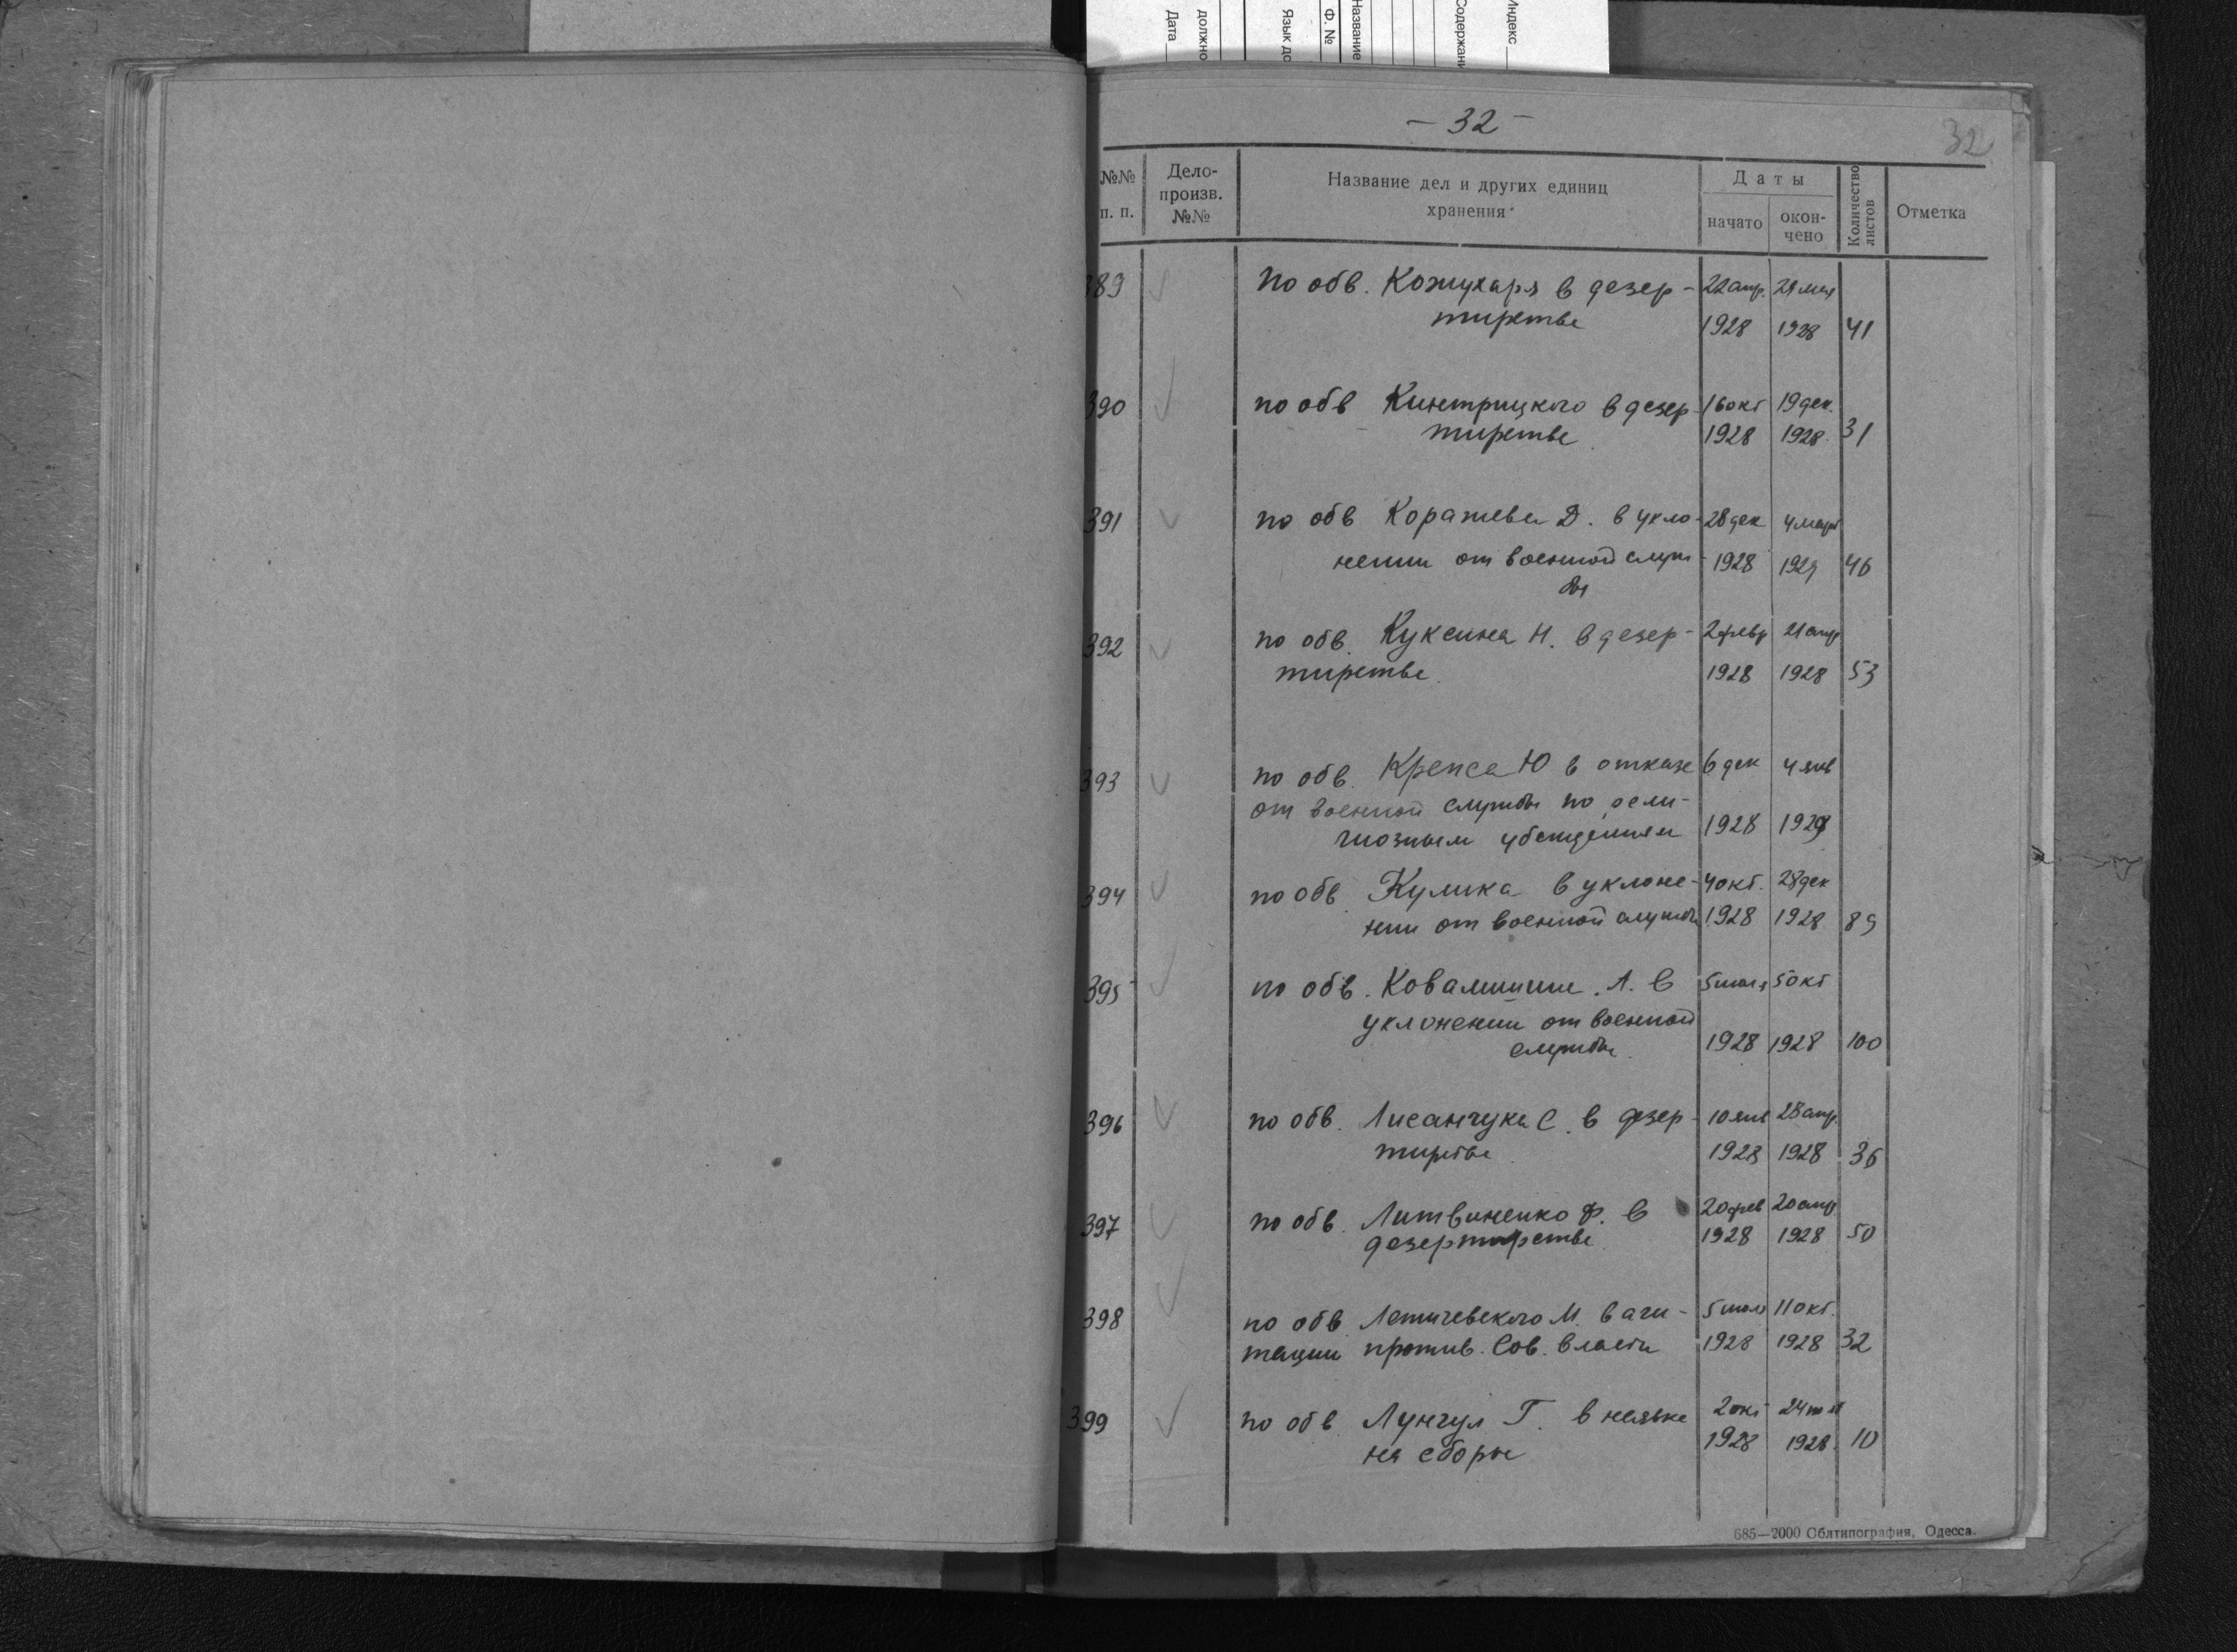 Индекс
Содержани
Название
Ф. №
Язык до
должно
Дата
— 32 —
32
№№ п. п.
Дело-произв. №№
Название дел и других единиц хранения
Даты
начато
окон-чено
Количество листов
Отметка
389 По обв. Кожухаря в дезер- 22 апр. 29 мая
тирстве 1928 1928 41
390 по обв Кинтрицкого в дезер- 16 окт 19 дек.
тирстве 1928 1928. 31
391 по обв Д. в укло- 28 дек 4 март
нении от военной служ- 1928 1929 46
бы
392 по обв. Куксина Н. в дезер- 2 февр 21 апр
тирстве. 1928 1928 53
393 по обв. Крепса Ю в отказе 6 дек 4 янв
от военной службы по рели-
гиозным убеждениям 1928 1929
394 по обв Кулика в уклоне- 4 окт. 28 дек
нии от военной службы 1928 1928 89
395 по обв. А. в 5 июля 5 окт
уклонении от военной
службы. 1928 1928 100
396 по обв. Лисанчука С. в дезер- 10 янв 28 апр.
тирстве 1928 1928 36
397 по обв. Литвиненко Ф. в 20 фев 20 апр
дезертирстве 1928 1928 50
398 по обв Летичевского М. в аги- 5 июля 11 окт.
тации против. Сов. власти 1928 1928 32
399 по обв Лунгул Г. в неявке 2 окт 24
на сборы 1928 1928. 10
685—2000 Облтипография, Одесса.